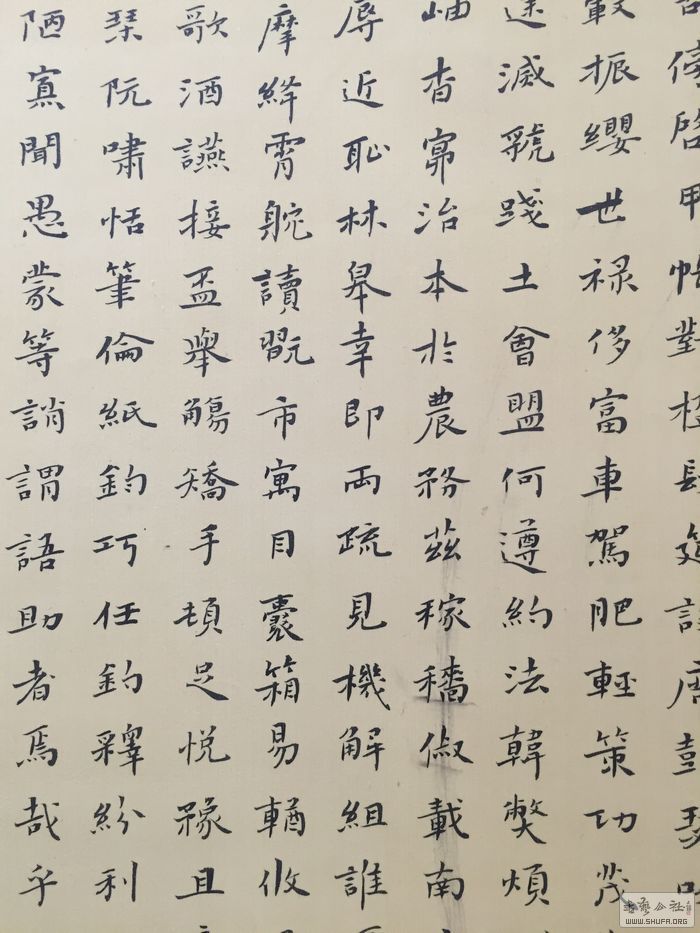 傍啓甲帳對楹肆筵設席鼓瑟
轂振纓世禄侈富車駕肥輕策功茂
途滅虢踐土會盟何遵約法韓弊煩
岫杳冥治本於農務茲稼穡俶載南
辱近恥林皋幸即兩疏見機解組誰
摩絳霄躭讀翫市寓目囊箱易輶攸
歌酒讌接盃舉觴矯手頓足悅豫且
琴阮嘯恬筆倫紙鈞巧任釣釋紛利
陋寡聞愚蒙等誚謂語助者焉哉乎
公社
WWW.SHUFA.ORG